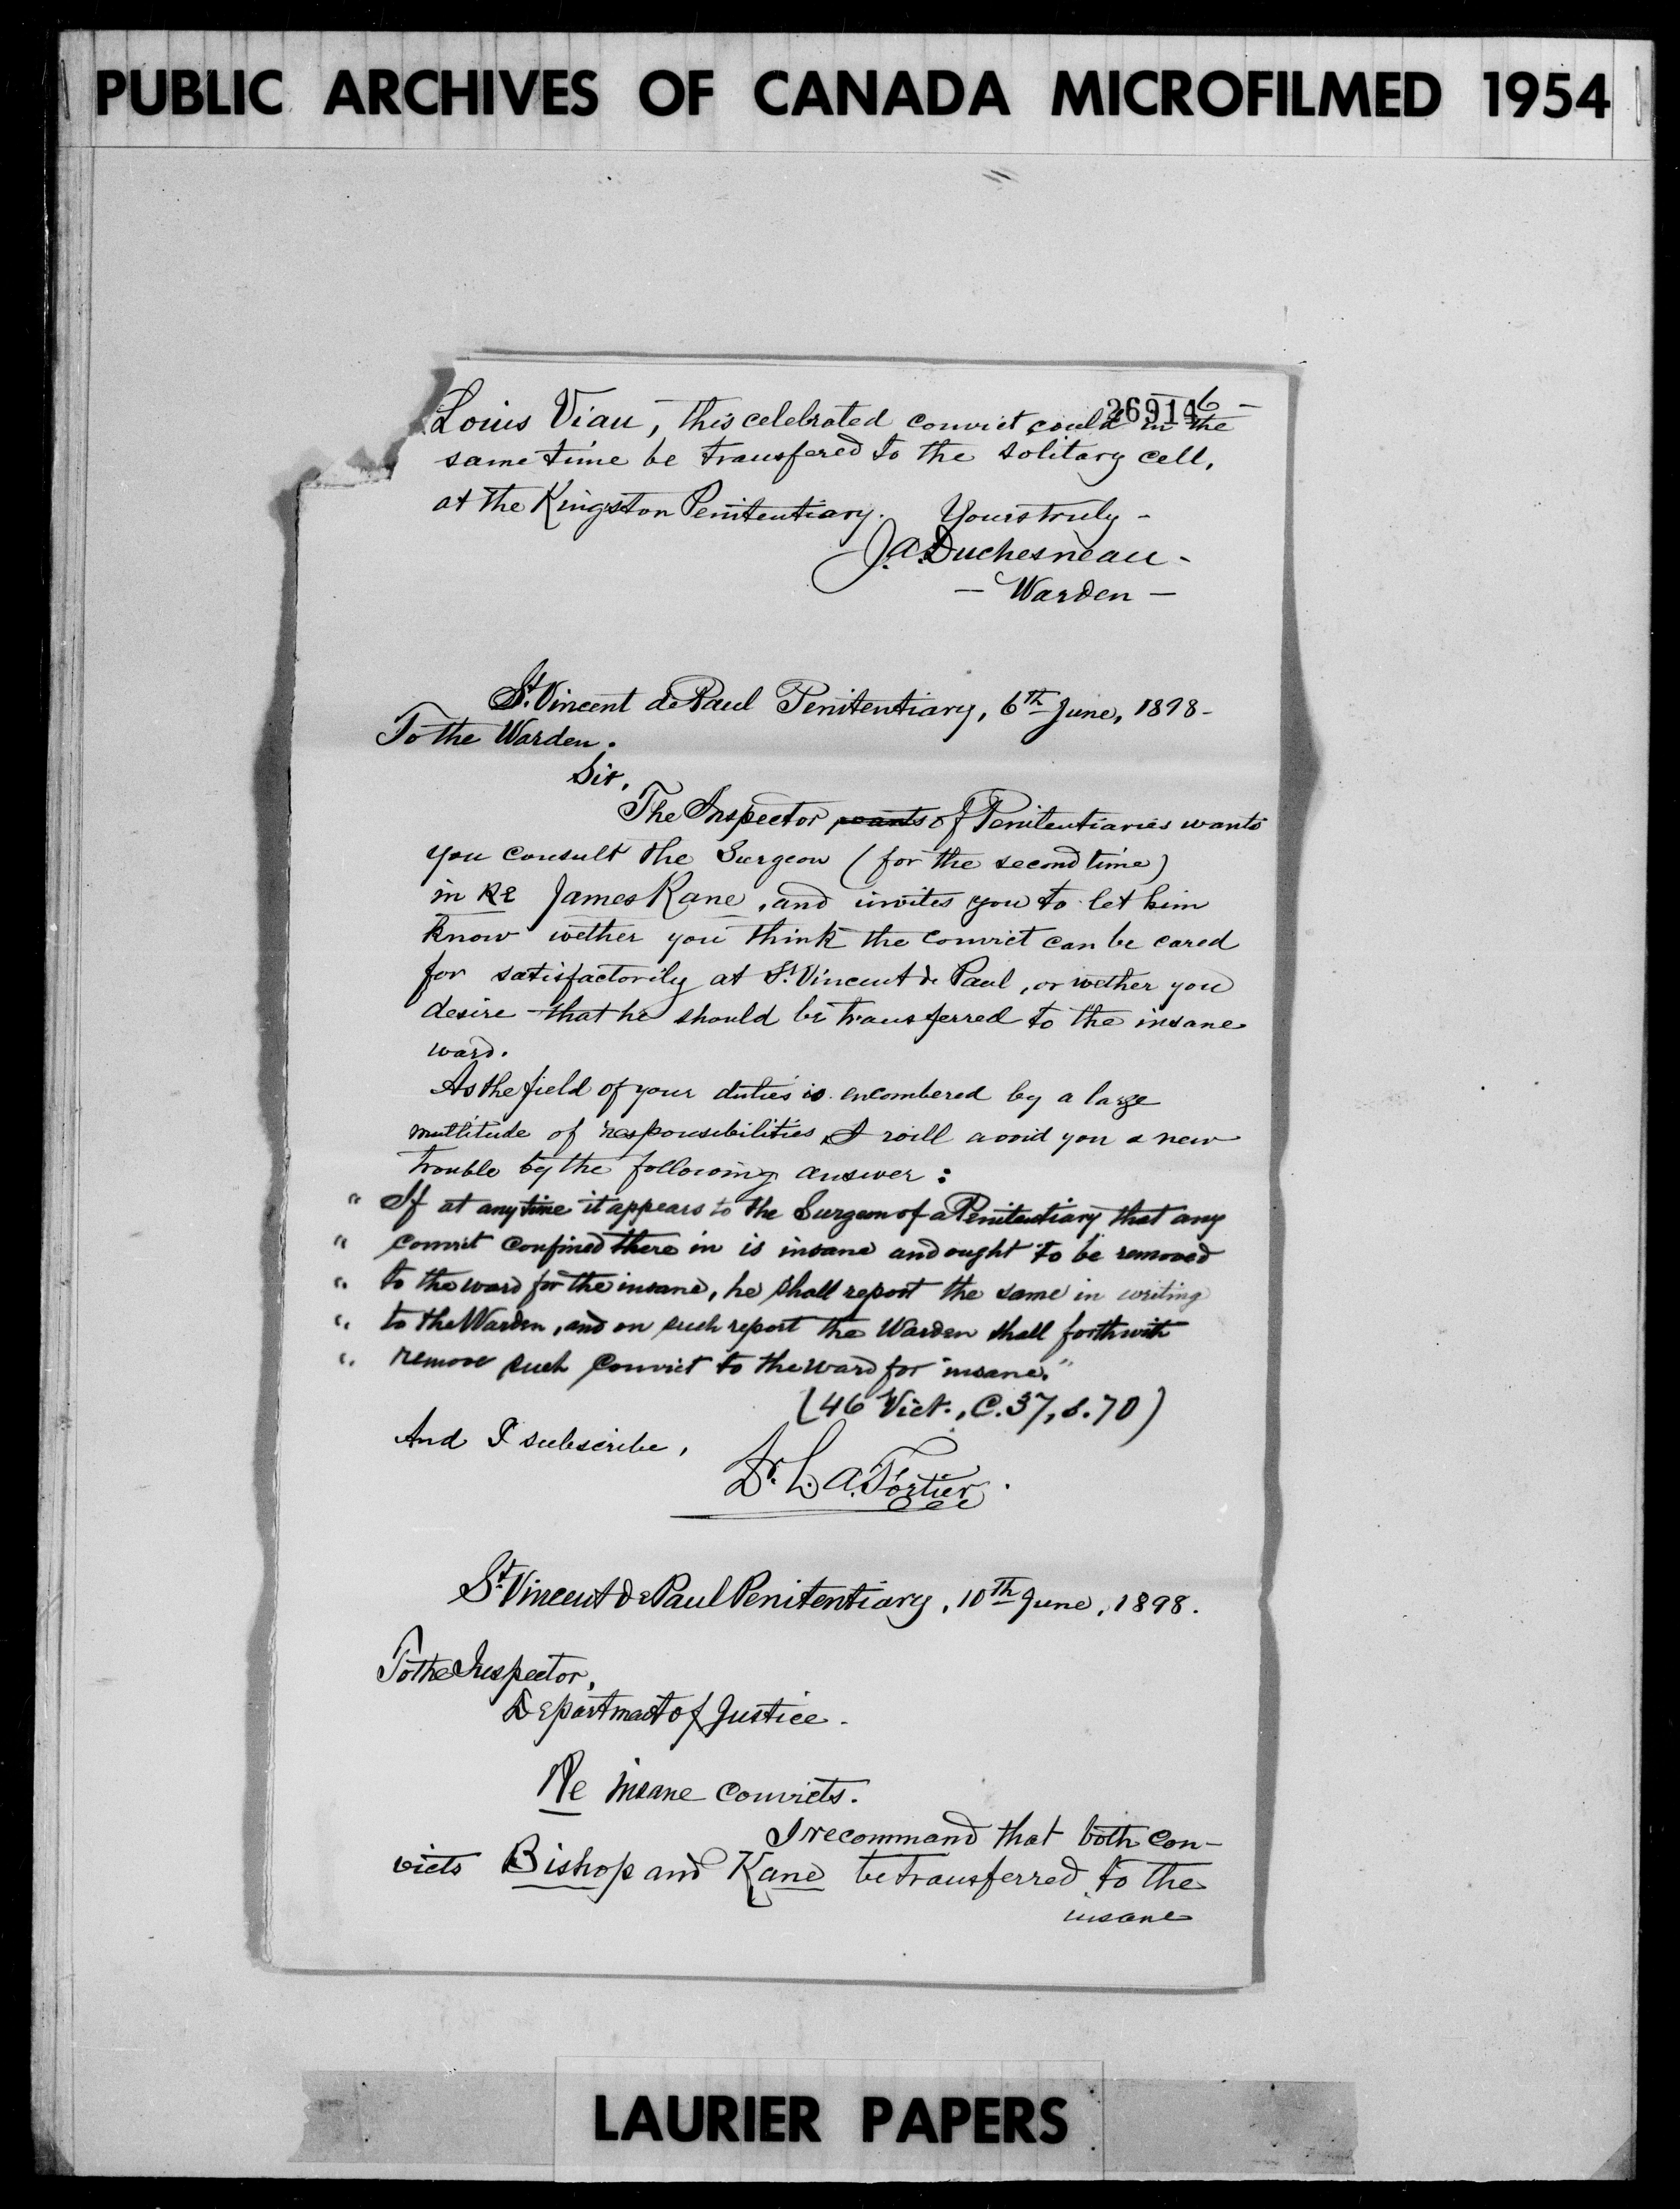 PUBLIC ARCHIVES OF CANADA MICROFILMED 1954
26914
6 -
Louis Viau, this celebrated convict could in the
same time be transfered to the solitary cell,
at the Kingston Penitentiary. Yours truly -
J.A. Duchesneau -
- Warden -
St. Vincent de Paul Penitentiary, 6th June, 1898 -
To the Warden.
Sir,
The Inspector wants of Penitentiaries wants
you consult the Surgeon (for the second time)
in Re James Kane, and invites you to let him
know wether you think the convict can be cared
for satisfactorily at St. Vincent de Paul, or wether you
desire that he should be transferred to the insane
ward.
As the field of your duties is encombered by a large
multitude of responsibilities, I will avoid you a new
trouble by the following answer :
" If at any time it appears to the Surgeon of a Penitentiary that any
" convict confined there in is insane and ought to be removed
" to the ward for the insane, he shall report the same in writing
" to the Warden, and on such report the Warden shall forthwith
" remove such convict to the ward for insane."
(46 Vict., C. 37, s. 70)
And I subscribe,
Dr. L. A. Fortier.
St. Vincent de Paul Penitentiary, 10th June, 1898.
To the Inspector,
Department of Justice.
Re Insane Convicts.
I recommand that both con-
victs Bishop and Kane be transferred to the
insane
LAURIER PAPERS